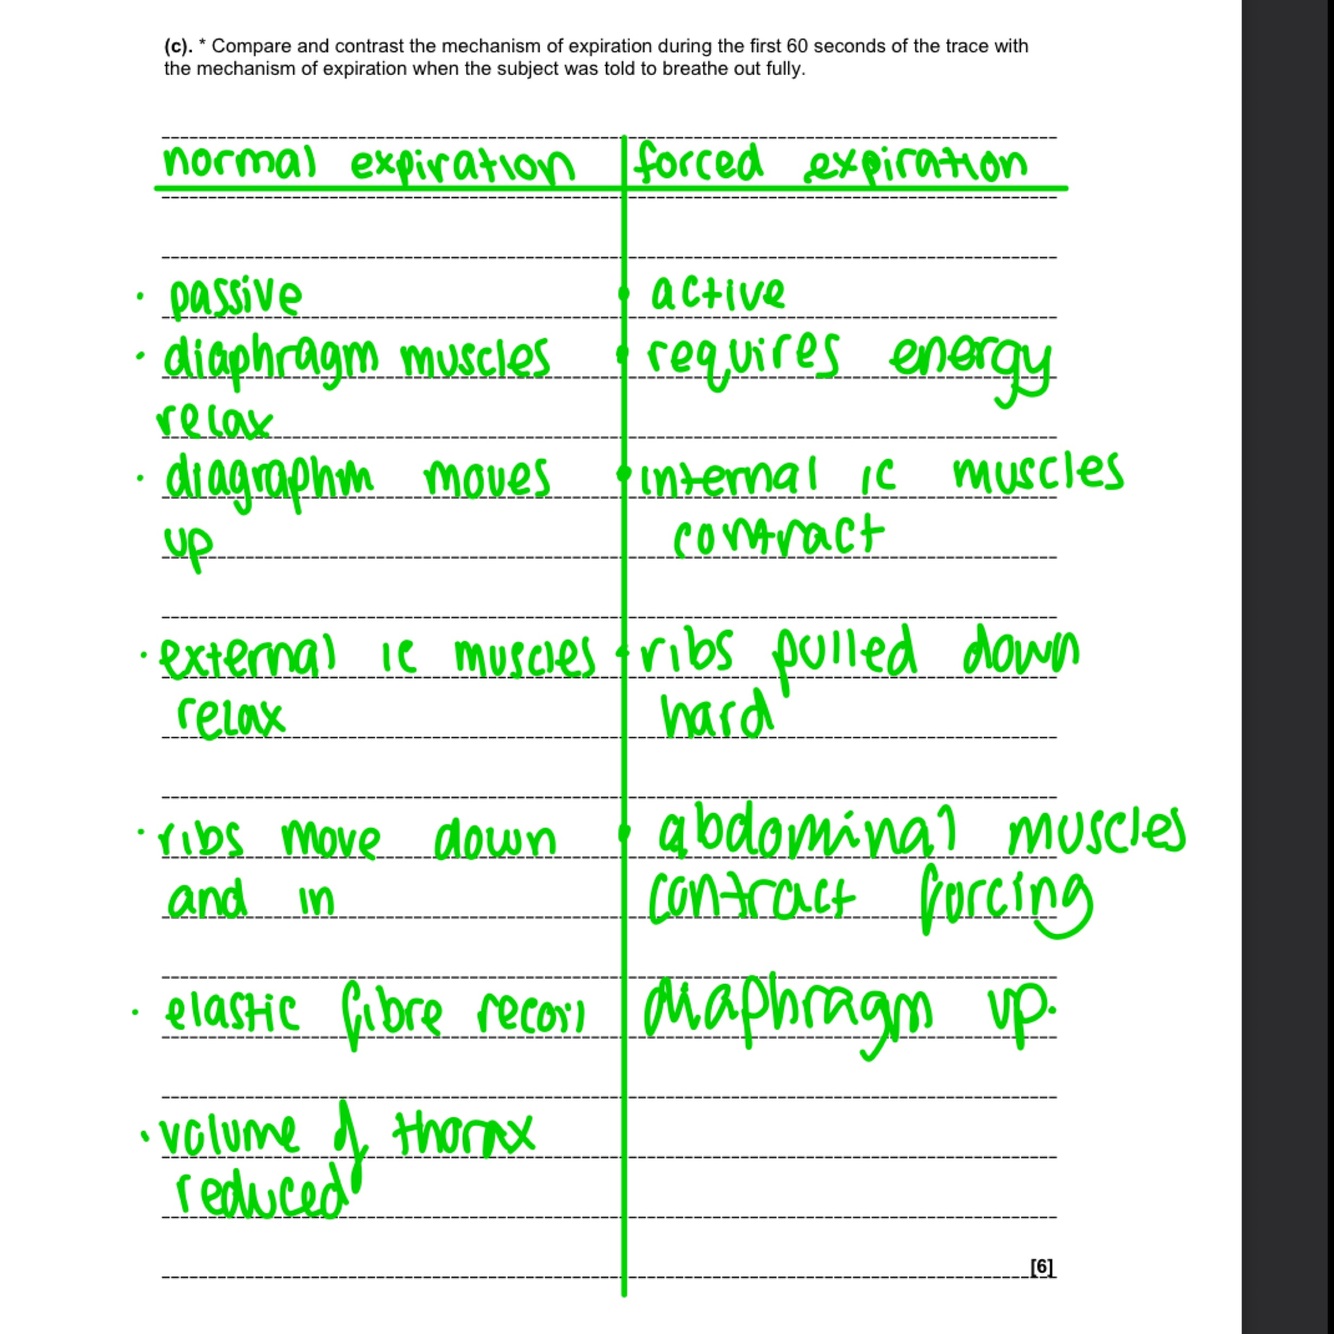 (c). * Compare and contrast the mechanism of expiration during the first 60 seconds of the trace with
the mechanism of expiration when the subject was told to breathe out fully.
normal expiration
· passive
· diaphragm muscles
relax
· diagraphm moves
up
· external ic muscles
relax
· ribs move down
and in
· elastic fibre recoil
· volume of thorax
reduced
forced expiration
• active
• requires energy
• internal ic muscles
contract
• ribs pulled down
hard
• abdominal muscles
contract forcing
diaphragm up.
[6]